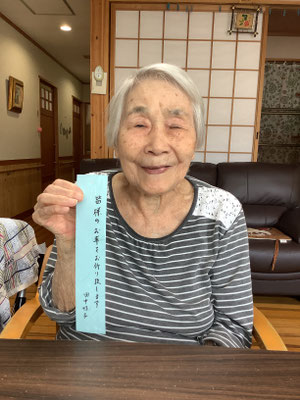 皆様のお幸せお祈り致します
田中